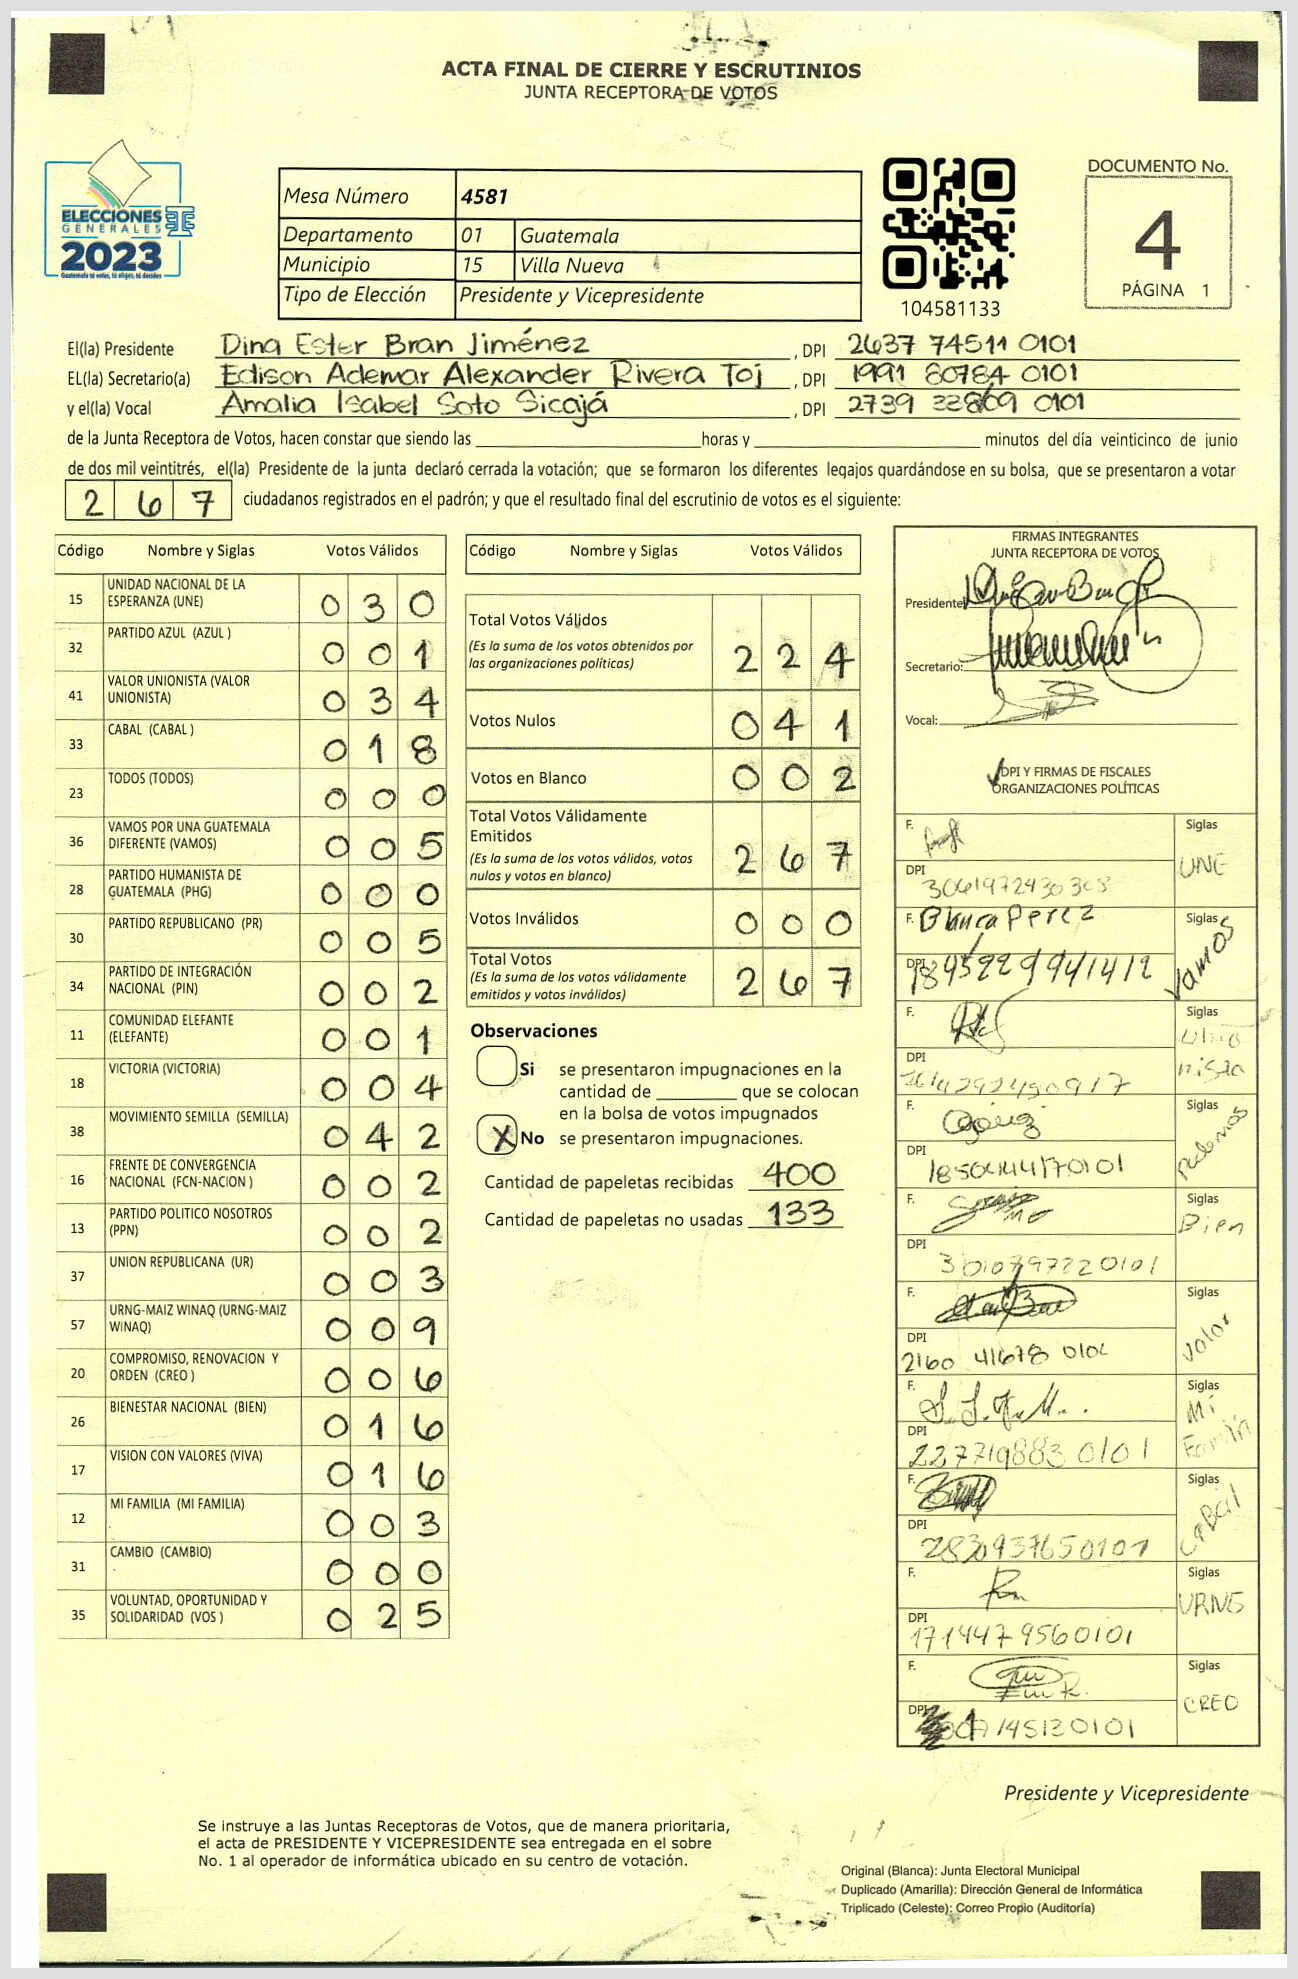 ACTA FINAL DE CIERRE Y ESCRUTINIOS
JUNTA RECEPTORA DE VOTOS
ELECCIONES
GENERALES
2023
Guatemala tú votas, tú eliges, tú decides
Mesa Número 4581
Departamento 01 Guatemala
Municipio 15 Villa Nueva
Tipo de Elección Presidente y Vicepresidente
104581133
DOCUMENTO No.
4
PÁGINA 1
El(la) Presidente Dina Ester Bran Jiménez , DPI 2637 74511 0101
EL(la) Secretario(a) Edison Ademar Alexander Rivera Toj , DPI 1991 80784 0101
y el(la) Vocal Amalia Isabel Soto Sicajá , DPI 2739 33869 0101
de la Junta Receptora de Votos, hacen constar que siendo las horas y minutos del día veinticinco de junio
de dos mil veintitrés, el(la) Presidente de la junta declaró cerrada la votación; que se formaron los diferentes legajos quardándose en su bolsa, que se presentaron a votar
2 6 7 ciudadanos registrados en el padrón; y que el resultado final del escrutinio de votos es el siguiente:
Código Nombre y Siglas Votos Válidos
15 UNIDAD NACIONAL DE LA
ESPERANZA (UNE) 0 3 0
32 PARTIDO AZUL (AZUL ) 0 0 1
41 VALOR UNIONISTA (VALOR
UNIONISTA) 0 3 4
33 CABAL (CABAL ) 0 1 8
23 TODOS (TODOS) 0 0 0
36 VAMOS POR UNA GUATEMALA
DIFERENTE (VAMOS) 0 0 5
28 PARTIDO HUMANISTA DE
GUATEMALA (PHG) 0 0 0
30 PARTIDO REPUBLICANO (PR) 0 0 5
34 PARTIDO DE INTEGRACIÓN
NACIONAL (PIN) 0 0 2
11 COMUNIDAD ELEFANTE
(ELEFANTE) 0 0 1
18 VICTORIA (VICTORIA) 0 0 4
38 MOVIMIENTO SEMILLA (SEMILLA) 0 4 2
16 FRENTE DE CONVERGENCIA
NACIONAL (FCN-NACION ) 0 0 2
13 PARTIDO POLITICO NOSOTROS
(PPN) 0 0 2
37 UNION REPUBLICANA (UR) 0 0 3
57 URNG-MAIZ WINAQ (URNG-MAIZ
WINAQ) 0 0 9
20 COMPROMISO, RENOVACION Y
ORDEN (CREO ) 0 0 6
26 BIENESTAR NACIONAL (BIEN) 0 1 6
17 VISION CON VALORES (VIVA) 0 1 6
12 MI FAMILIA (MI FAMILIA) 0 0 3
31 CAMBIO (CAMBIO) 0 0 0
35 VOLUNTAD, OPORTUNIDAD Y
SOLIDARIDAD (VOS ) 0 2 5
Código Nombre y Siglas Votos Válidos
Total Votos Válidos
(Es la suma de los votos obtenidos por
las organizaciones políticas) 2 2 4
Votos Nulos 0 4 1
Votos en Blanco 0 0 2
Total Votos Válidamente
Emitidos
(Es la suma de los votos válidos, votos
nulos y votos en blanco) 2 6 7
Votos Inválidos 0 0 0
Total Votos
(Es la suma de los votos válidamente
emitidos y votos inválidos) 2 6 7
Observaciones
Si se presentaron impugnaciones en la
cantidad de que se colocan
en la bolsa de votos impugnados
X No se presentaron impugnaciones.
Cantidad de papeletas recibidas 400
Cantidad de papeletas no usadas 133
FIRMAS INTEGRANTES
JUNTA RECEPTORA DE VOTOS
Presidente:
Secretario:
Vocal:
DPI Y FIRMAS DE FISCALES
ORGANIZACIONES POLÍTICAS
F. Siglas
UNE
DPI
F. Blanca Perez Siglas
Vamos
DPI 1845229941412
F. Siglas
Unio
nista
DPI
F. Siglas
podemos
DPI
F. Siglas
Bien
DPI 3010797220101
F. Siglas
Valor
DPI 2160 41678 0101
F. Siglas
Mi
Familia
DPI 227719883 0101
F. Siglas
CABAL
DPI 2830937650101
F. Siglas
URNG
DPI 1714479560101
F. Siglas
CREO
DPI
Presidente y Vicepresidente
Se instruye a las Juntas Receptoras de Votos, que de manera prioritaria,
el acta de PRESIDENTE Y VICEPRESIDENTE sea entregada en el sobre
No. 1 al operador de informática ubicado en su centro de votación.
Original (Blanca): Junta Electoral Municipal
Duplicado (Amarilla): Dirección General de Informática
Triplicado (Celeste): Correo Propio (Auditoría)